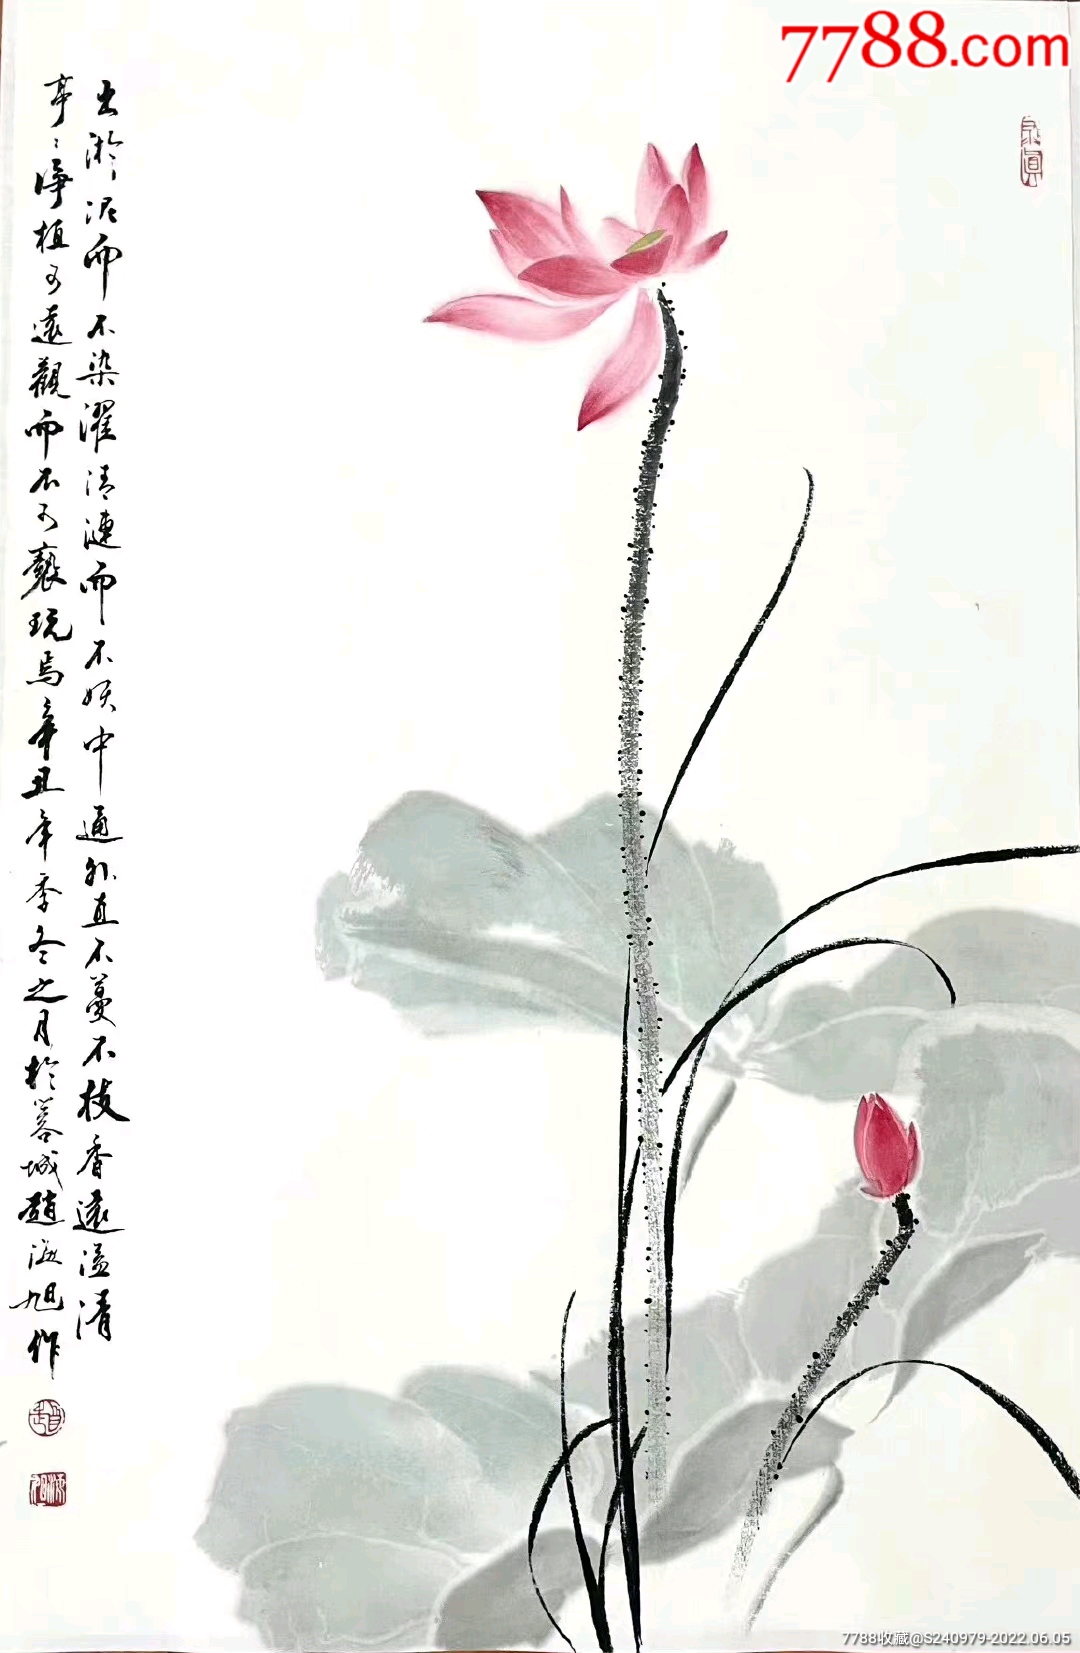 7788.com
出淤泥而不染濯清漣而不妖中通外直不蔓不枝香遠溢清
亭〻淨植可遠觀而不可褻玩焉辛丑年季冬之月於蓉城趙海旭作
7788收藏@S240979-2022.06.05